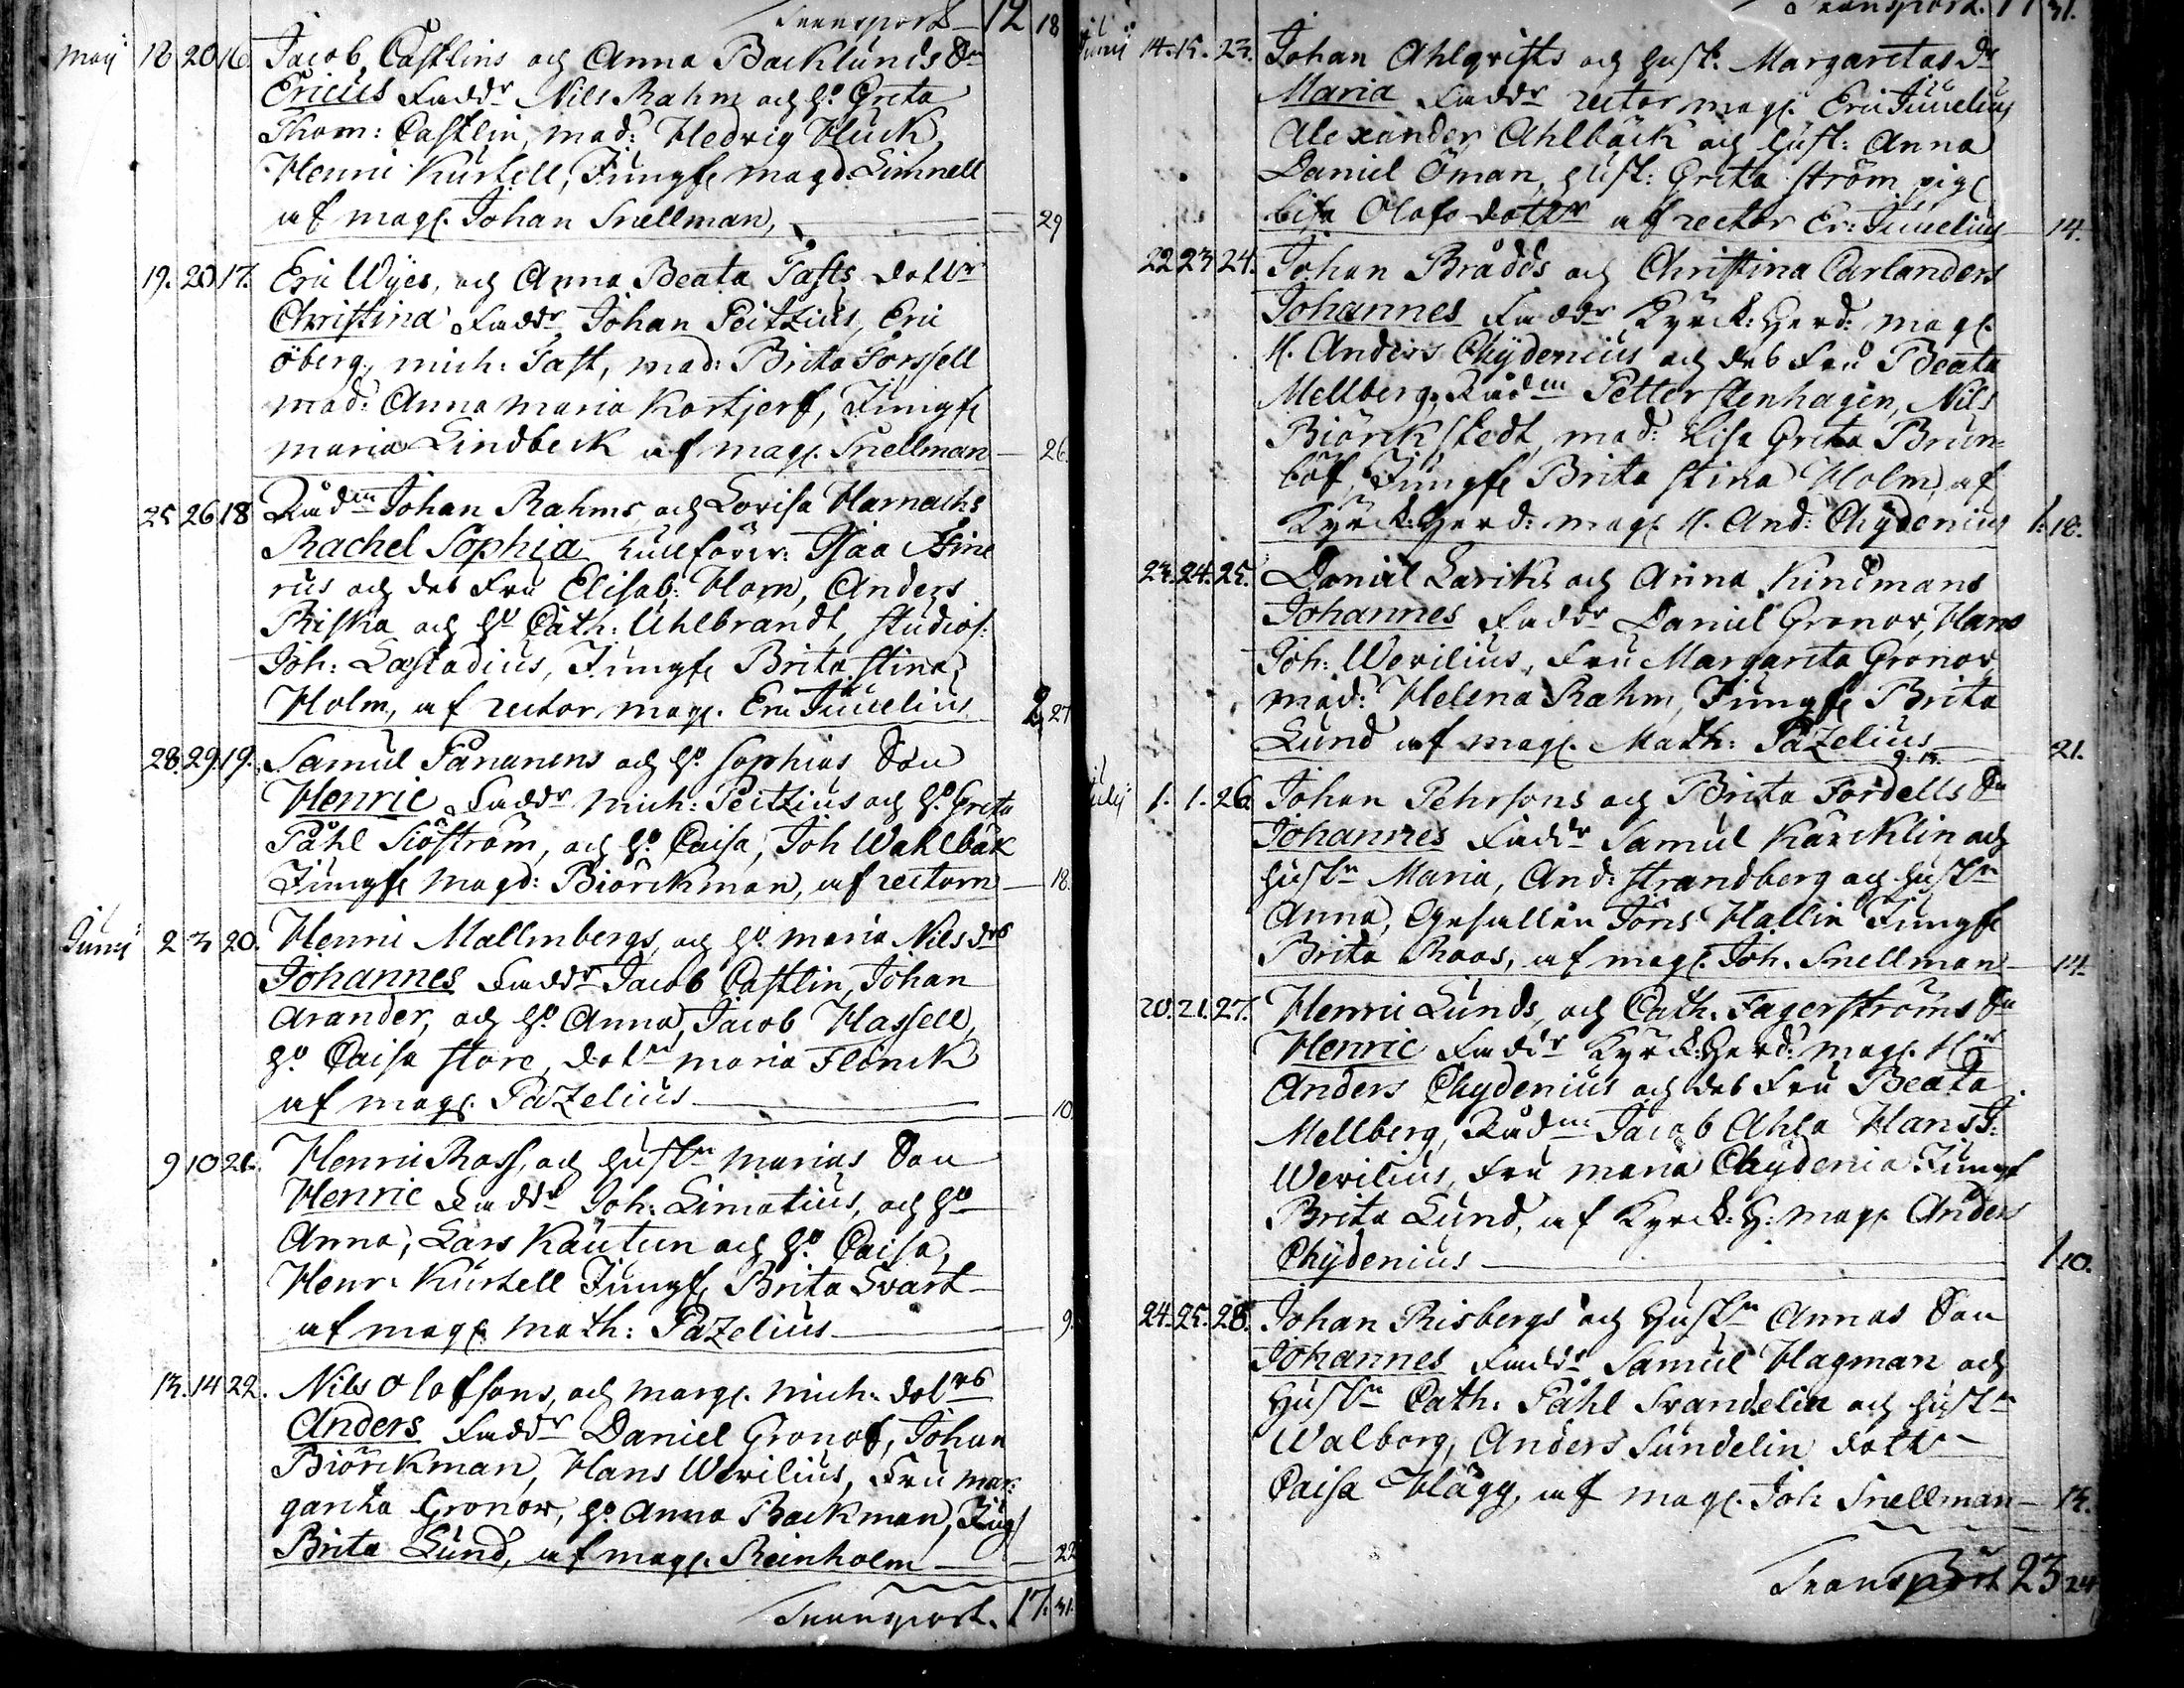 Transport 12 18
Maij 18 20 16 Jacob Castlins och Anna Backlunds Sn
Ericus Faddr Nils Rahm och Ho Greta
Thom: Castlin, mad: Hedvig Huck,
Henric Kurtell, Jungfr Magd: Limnell
af mag. Johan Snellman, 29
19. 20 17. Eric Wijes, och Anna Beata Tasts dottr
Christina Faddr Johan Peitzius, Eric
Öberg, Mich. Tast, mad: Brita Forssell
mad: Anna Maria Kortjerf, Jungfr
Maria Lindbeck af mag. Snellman 26.
25 26 18 Rådm Johan Rahms, och Lovisa Harnachs
Rachel Sophia Tullförv: Isaac
rus och des Fru Elisab: Horn, Anders
Riska och Ho Cath: Uhlbrandt, Studios:
Joh: Læstadius, Jungfr Brita Stina
Holm, af rector mag. Eric Juuelius 27
28. 29 19. Samuel Pananens och Ho Sophias Son
Henric Faddr Mich: Peitzius och Ho Greta
Påhl Siöström, och Ho Caisa, Joh Wahlbäck
Jungfr Magd: Biörckman, af rectorn 18.
Junij 2 3 20. Henric Mallmbergs, och Ho Maria Nils drs
Johannes Faddr Jacob Castlin, Johan
Arander, och Ho Anna, Jacob Hassell,
Ho Caisa Store, dotr Maria Flinck
af mag. Pazelius 10.
9 10 21. Henric Ross, och Hustr Marias Son
Henric Faddr Joh: Limatius, och Ho
Anna, Lars Käuten och Ho Caisa,
Henr: Kurtell Jungfr Brita Svart
af mag. Math: Pazelius 9.
13. 14 22. Nils Olofsons, och Marg. Mich: dotrs
Anders Faddr Daniel Gronof, Johan
Biörckman, Hans Wevilius, Fru Mar:
gareta Gronow, Ho Anna Backman, Jung
Brita Lund, af mag. Reinholm 22
Transport. 17. 31.
Transport. 17 31.
Junij 14. 15. 23. Johan Ahlqvists och Hust: Margaretas Dr
Maria Faddr rector mag. Eric Juuelius
Alexander Ahlbäck och Hust: Anna
Daniel Öman, Hust: Greta Ström pig
Lisa Olofs dottr af rector Er: Juuelius 14.
22 23 24. Johan Brådds och Christina Carlanders
Johannes Faddr Kyrck: Herd: mag.
H. Anders Chydenius och des Fru Beata
Mellberg, Rådm Petter Stenhagen, Nils
Biörckstedt, mad: Lisa Greta Brun=
löf, Jungfr Brita Stina Holm, af
Kyrck: Herd: mag. H. And: Chydenius 1. 10.
23. 24. 25. Daniel Lariks och Anna Kindmans
Johannes Faddr Daniel Gronov, Hans
Joh: Wevilius, Fru Margareta Gronov
mad: Helena Rahm, Jungfr Brita
Lund af mag. Math: Pazelius 21.
Julij 1. 1. 26. Johan Pehrsons och Brita Fordells Sn
Johannes Faddr Samuel Kärcklin och
Hustn Maria, And: Strandberg och Hustn
Anna, Gesällen Jöns Hallin Jungfr
Brita Roos, af mag. Joh. Snellman 14.
20. 21. 27. Henric Lunds, och Cath. Fagerströms Sn
Henric Faddr Kyrck: Herd: mag. Hr
Anders Chydenius och des Fru Beata
Mellberg, Rådm Jacob Ahla Hans J:
Wevilius, Fru Maria Chydenia Jungf
Brita Lund, af Kyrck: H: mag. Anders
Chydenius 1 10.
24. 25. 28. Johan Risbergs och Hustn Annas Son
Johannes Faddr Samuel Hagman och
Hustn Cath: Påhl Svandelin och Hustn
Walborg, Anders Sundelin dottr
Caisa Hägg, af mag. Joh Snellman 13.
Transport 23 24